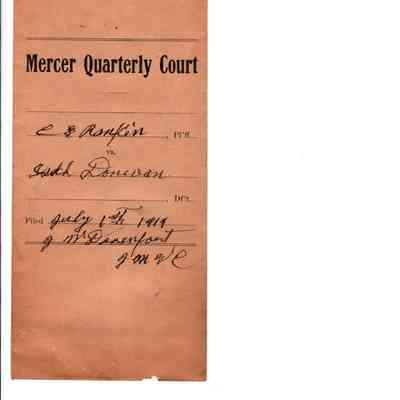 Mercer Quarterly Court
C E Rankin, Pl'ff.
vs.
Donevan
Dft.
Filed July 1st 1919
J W Davenport
J M Q C